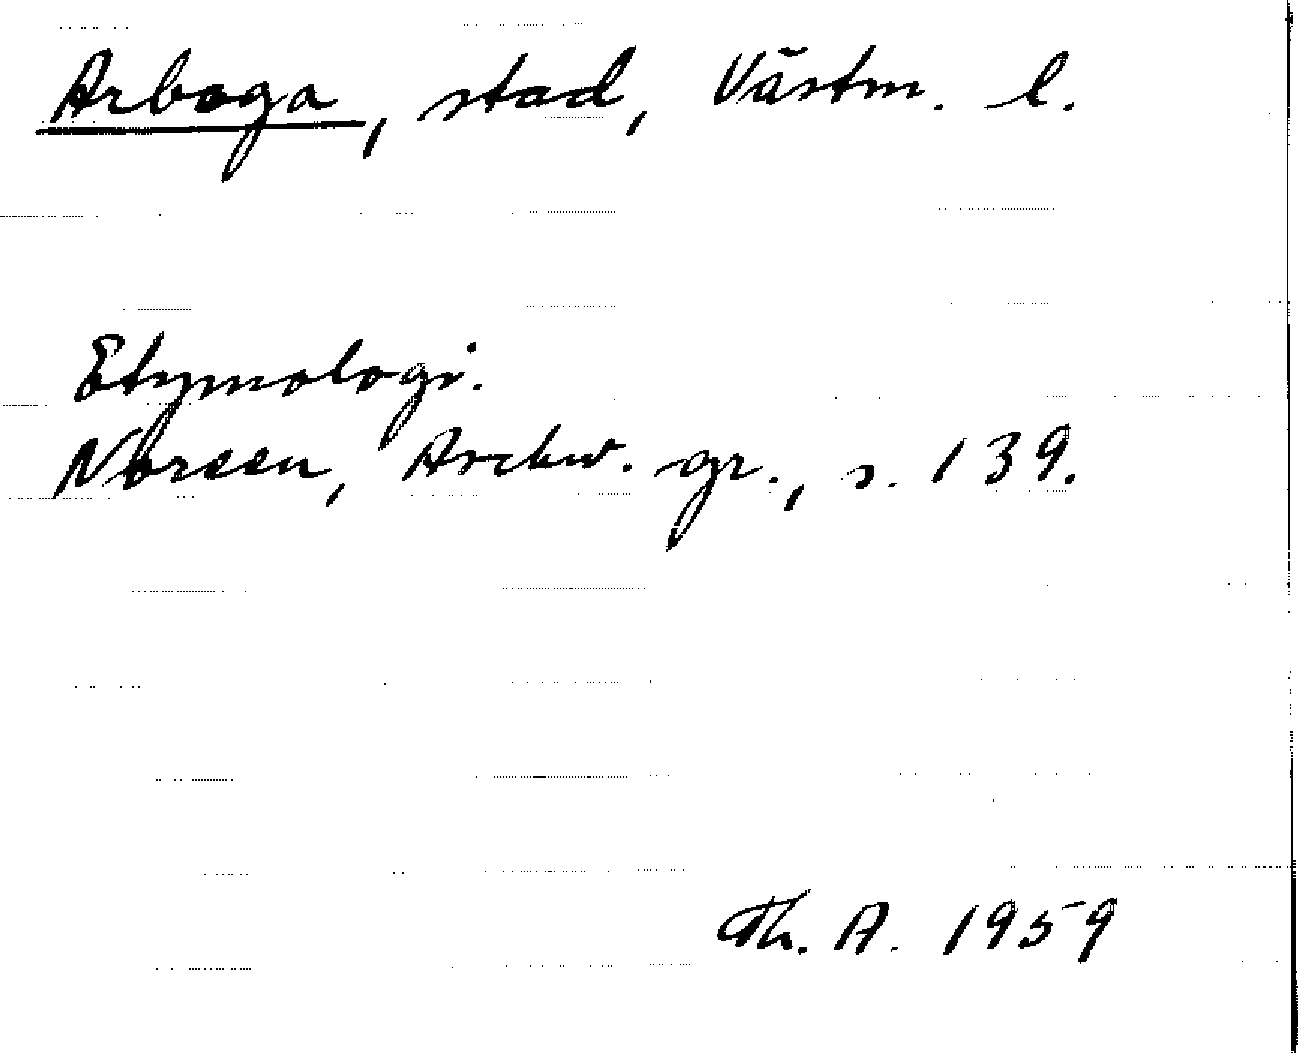 Arboga, stad, Västm. l.
Etymologi.
Noreen, Aschw. gr., s. 139.
Th. A. 1959